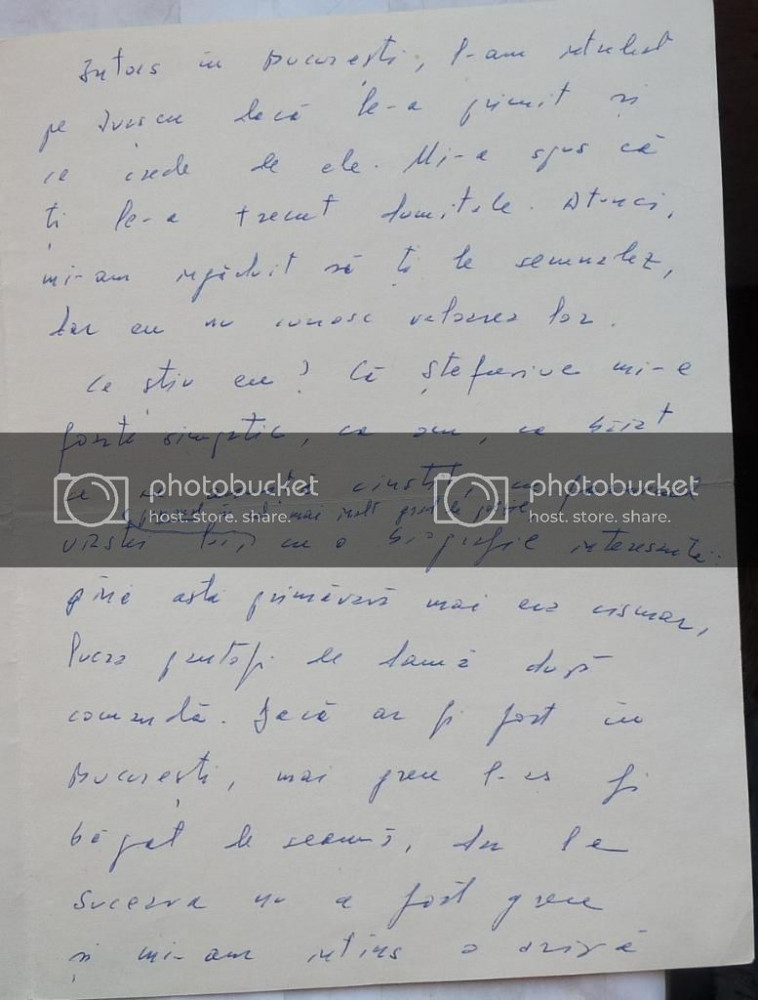 Întors în București, l-am întrebat
pe Iurscu dacă le-a primit și
ce crede de ele. Mi-a spus că
ți le-a trecut dumitale. Atunci,
mi-am îngăduit să ți le semnalez,
dar eu nu cunosc valoarea lor.
Ce știu eu? Că Ștefuriuc mi-e
foarte simpatic, ca om, ca băiat
photobucket photobucket
host. store. share. host. store. share.
mai mult
vârstei lui, cu o biografie interesantă.
Pînă astă primăvară mai era cismar,
lucra pantofi de damă după
comandă. Dacă ar fi fost în
București, mai greu l-aș fi
băgat de seamă, dar la
Suceava nu a fost greu
și mi-am întins o aripă